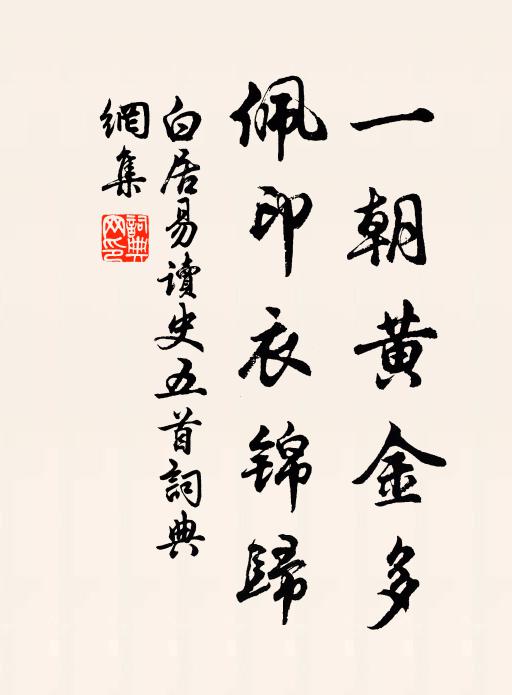 一朝黄金多
佩印衣锦歸
白居易讀史五首詞典
網集
詞典
网印